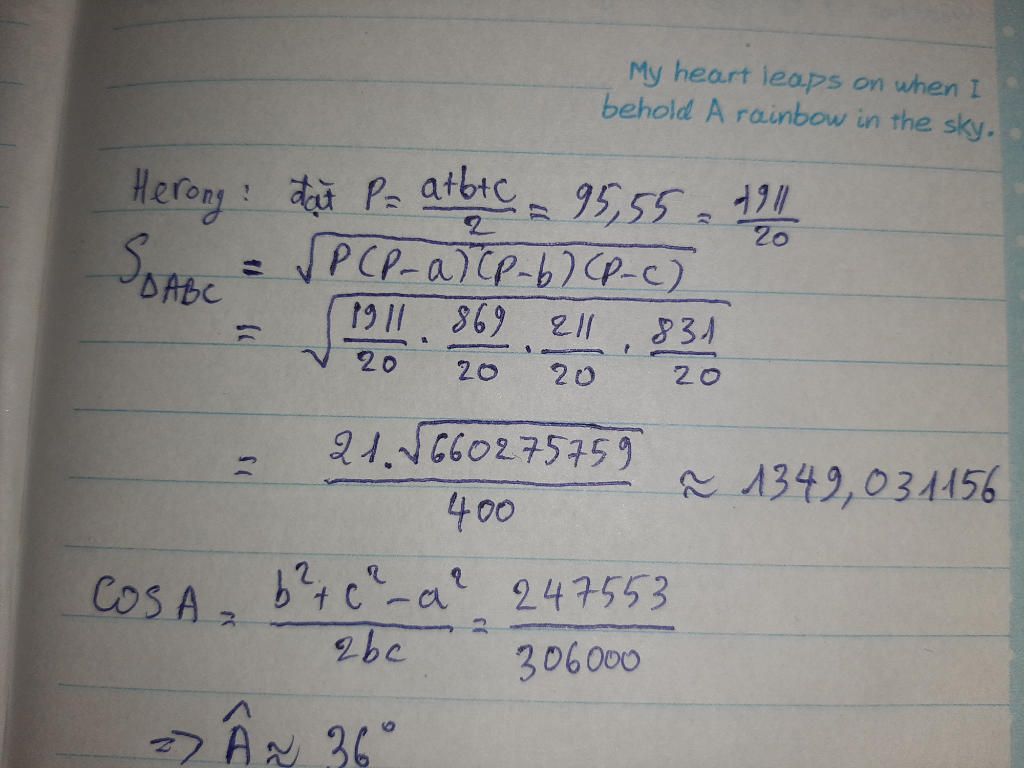 My heart leaps on when I
behold A rainbow in the sky.
Herong: đặt P = a+b+c/2 = 95,55 = 1911/20
SΔABC = √P(P-a)(P-b)(P-c)
= √1911/20 . 869/20 . 211/20 . 831/20
= 21.√660275759/400 ≈ 1349,031156
COS A = b²+c²-a²/2bc = 247553/306000
=> Â ≈ 36°